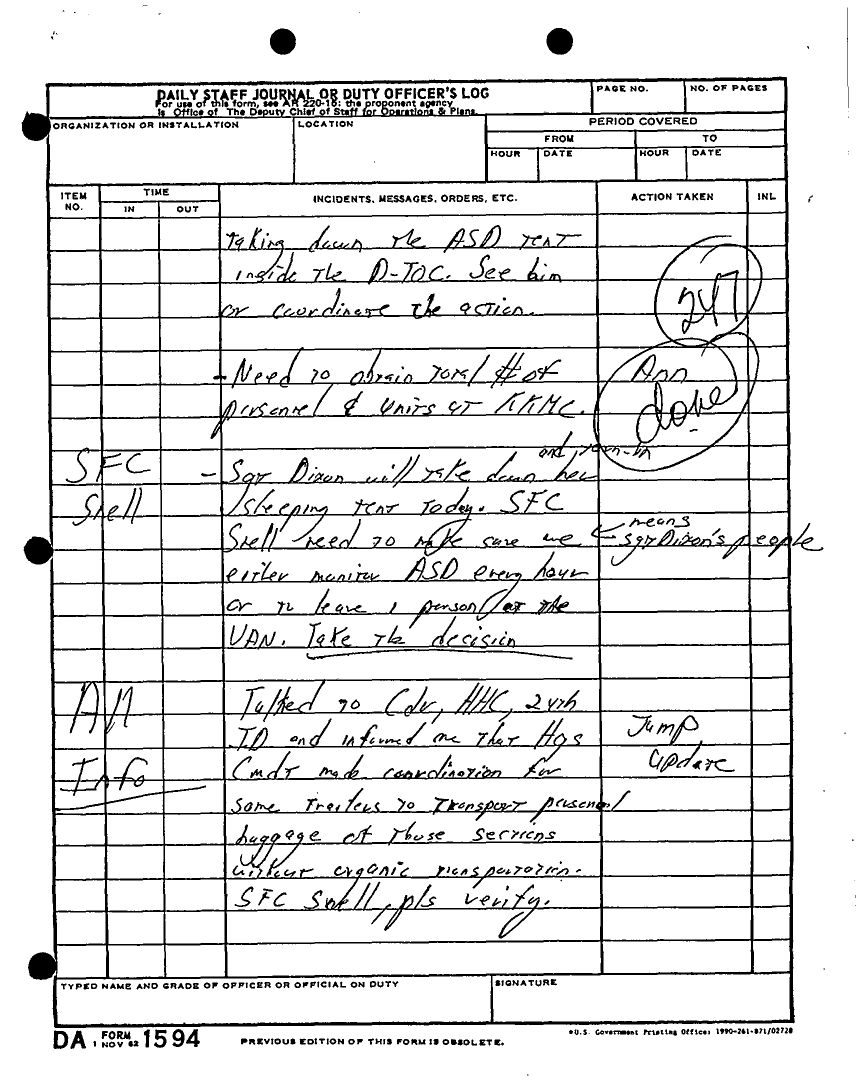 DAILY STAFF JOURNAL OR DUTY OFFICER'S LOG
For use of this form, see AR 220-15: the proponent agency
is Office of The Deputy Chief of Staff for Operations & Plans.
PAGE NO.
NO. OF PAGES
ORGANIZATION OR INSTALLATION
LOCATION
PERIOD COVERED
FROM
TO
HOUR
DATE
HOUR
DATE
ITEM NO.
TIME
IN
OUT
INCIDENTS, MESSAGES, ORDERS, ETC.
ACTION TAKEN
INL
Taking down the ASD tent
inside the D-TOC. See him
or coordinate the action.
247
- Need to obtain total # of
personnel & units at KKMC.
Ann
done
SFC
Snell
and turn-in
- Sgt Dixon will take down her
sleeping tent today. SFC
Snell need to make sure we
← means
Sgt Dixon's people
either monitor ASD every hour
or to leave 1 person at the
VAN. Take the decision
All
Info
Talked to Cdr, HHC, 24th
ID and informed me that Hqs
Cmdt made coordination for
some trailers to transport personal
baggage of those sections
without organic transportation.
SFC Snell, pls verify.
Jump
update
TYPED NAME AND GRADE OF OFFICER OR OFFICIAL ON DUTY
SIGNATURE
DA FORM 1 NOV 62 1594
PREVIOUS EDITION OF THIS FORM IS OBSOLETE.
*U.S. Government Printing Office: 1990-261-871/02728